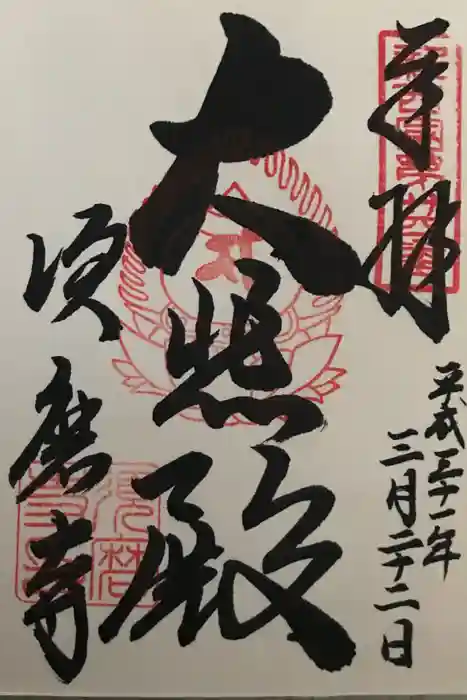 奉拝
平成三十一年
三月二十二日
大悲殿
須磨寺
須磨寺